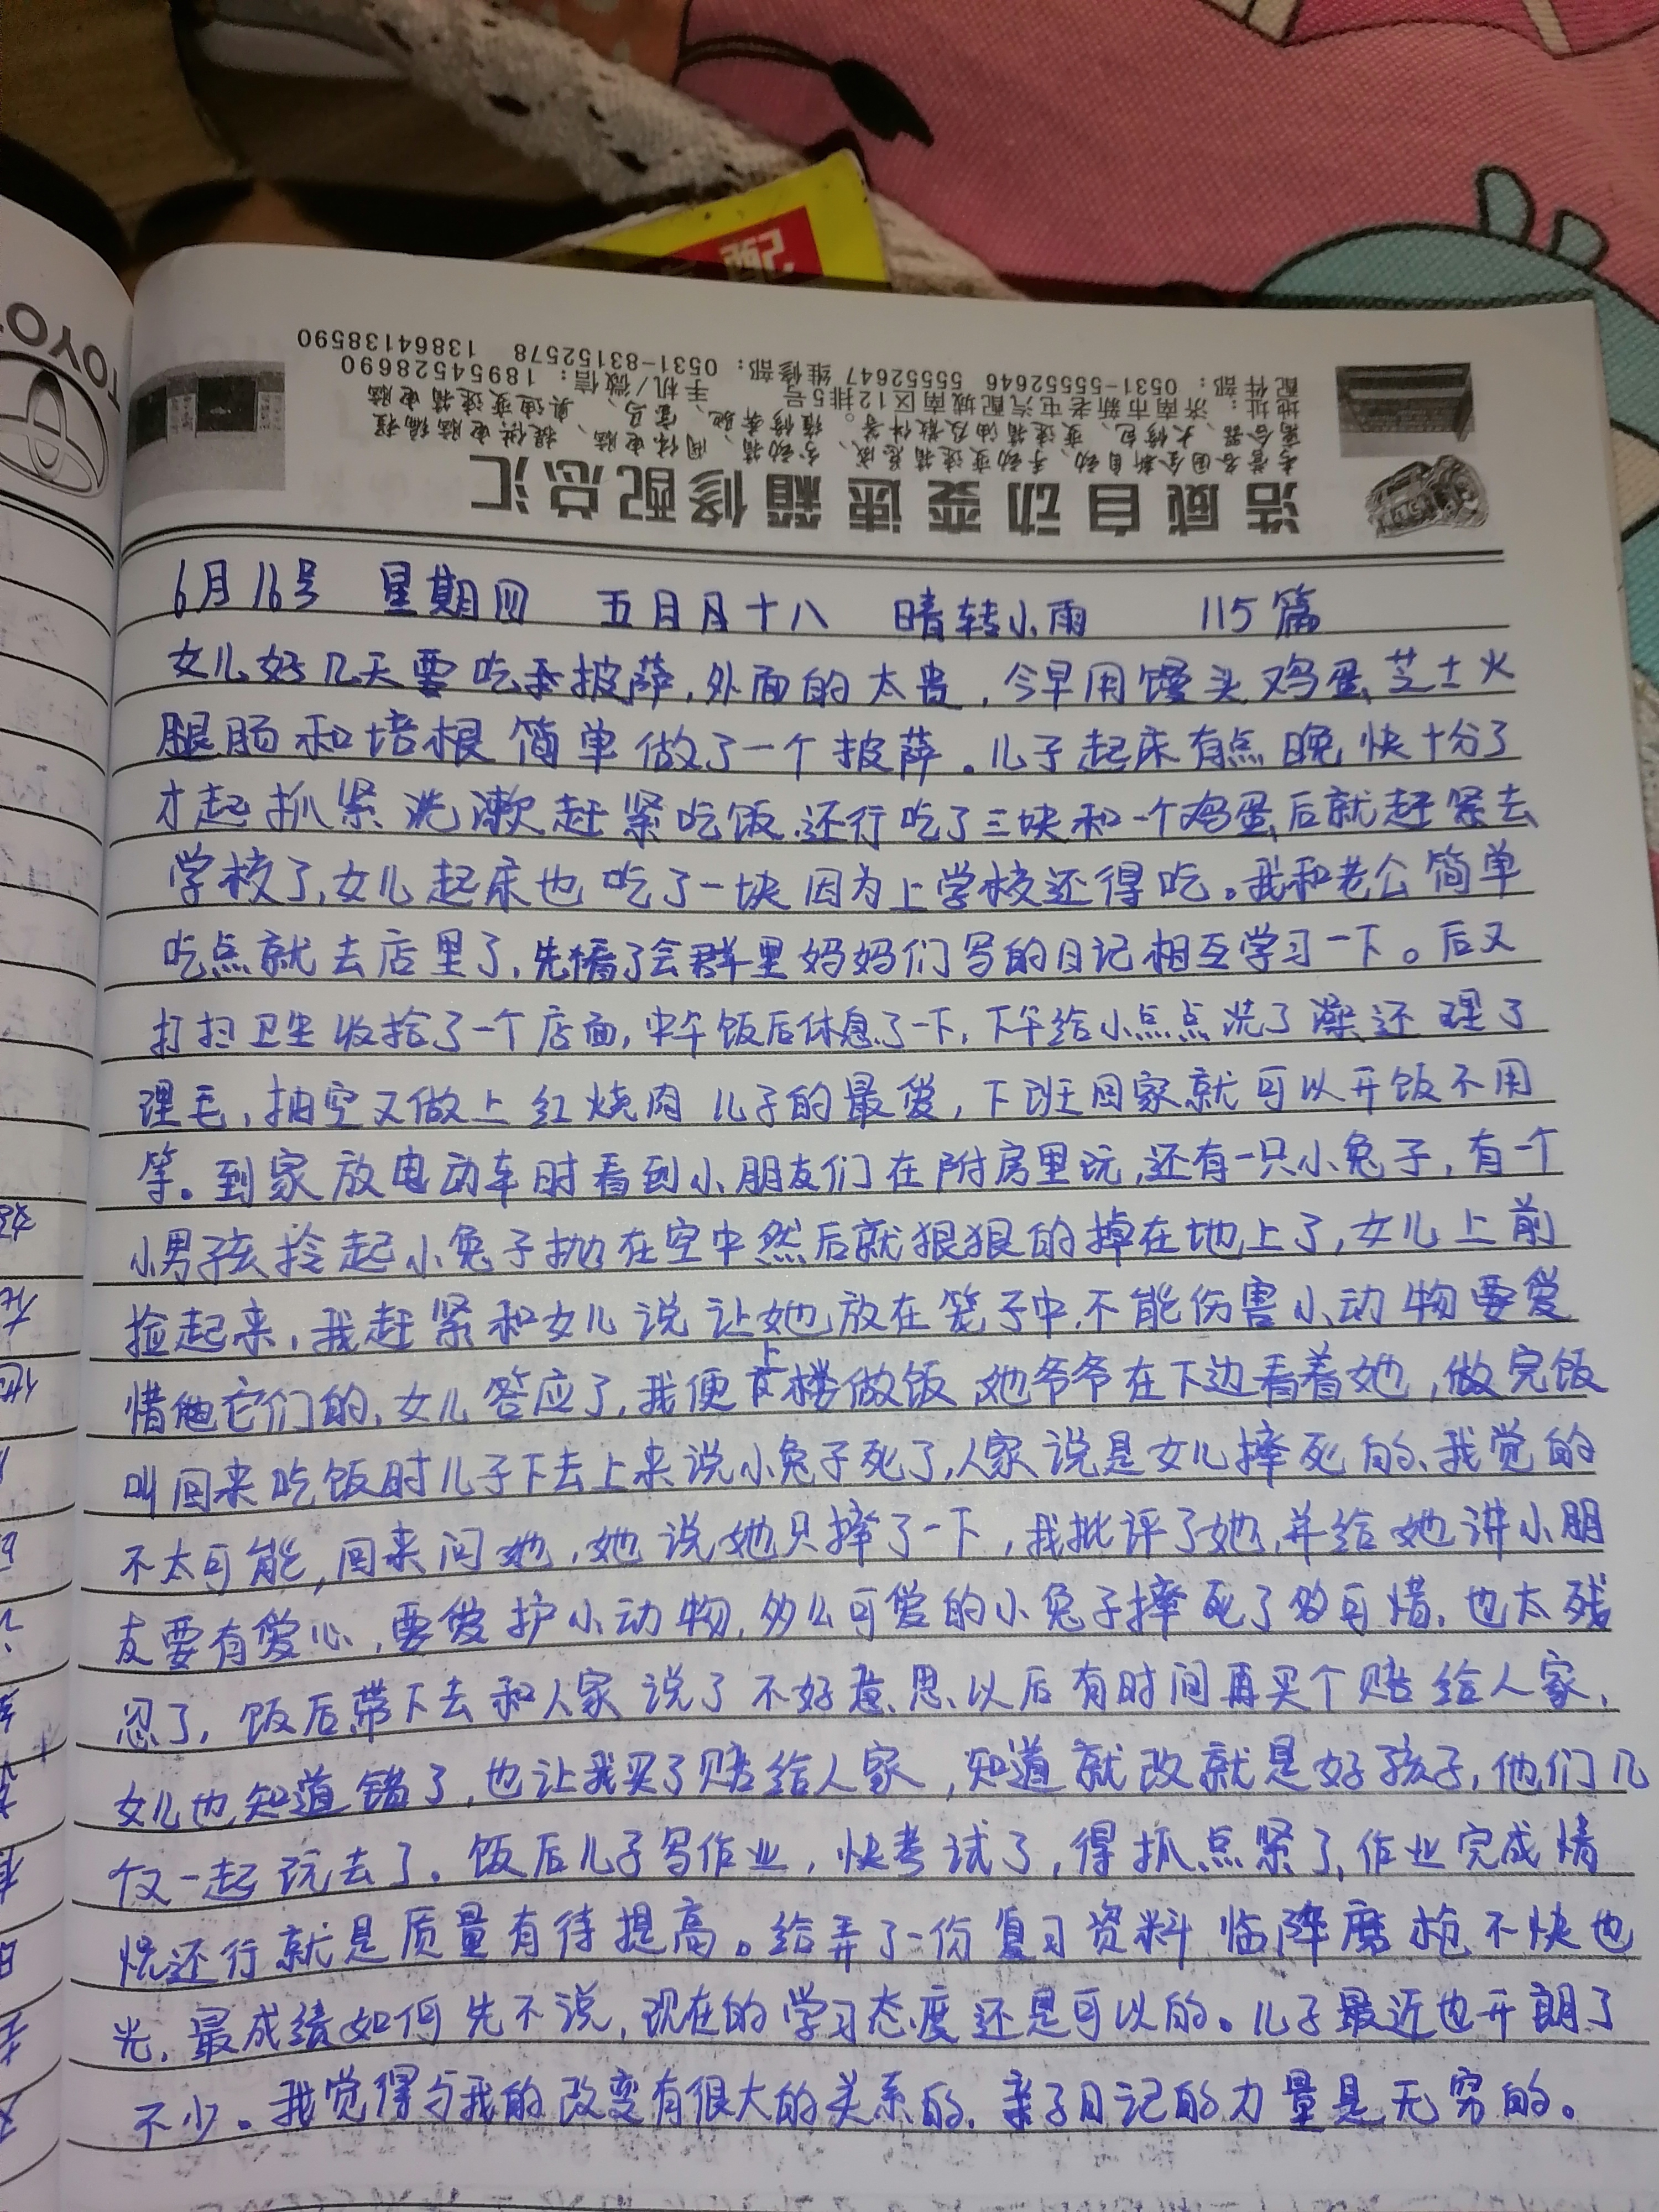 TOYO
配
浩威自动变速箱修配总汇
地址：济南市新老屯汽配城南区12排5号 手机/微信：18954528690
配件部：0531-55552646 55552647 维修部：0531-83152578 13864138590
6月16号 星期四 五月十八 晴转小雨 115篇
女儿好几天要吃披萨，外面的太贵，今早用馒头鸡蛋芝士火
腿肠和培根简单做了一个披萨。儿子起床有点晚快十分了
才起抓紧洗漱赶紧吃饭还行吃了三块和一个鸡蛋后就赶紧去
学校了，女儿起床也吃了一块因为上学校还得吃。我和老公简单
吃点就去店里了，先看了会群里妈妈们写的日记相互学习一下。后又
打扫卫生收拾了一个店面，中午饭后休息了一下，下午给小点点洗了澡还理了
理毛，抽空又做上红烧肉儿子的最爱，下班回家就可以开饭不用
等。到家放电动车时看到小朋友们在附房里玩，还有一只小兔子，有一个
小男孩拎起小兔子抛在空中然后就狠狠的掉在地上了，女儿上前
捡起来，我赶紧和女儿说让她放在笼子中，不能伤害小动物要爱
惜它们的，女儿答应了，我便上楼做饭，她爷爷在下边看着她，做完饭
叫回来吃饭时儿子下去上来说小兔子死了，人家说是女儿摔死的、我觉的
不太可能，回来问她，她说她只摔了一下，我批评了她，并给她讲小朋
友要有爱心，要爱护小动物，多么可爱的小兔子摔死了多可惜，也太残
忍了，饭后带下去和人家说了不好意思、以后有时间再买个赔给人家，
女儿也知道错了，也让我买了赔给人家，知道就改就是好孩子，他们几
个又一起玩去了。饭后儿子写作业，快考试了，得抓点紧了，作业完成情
恍还行就是质量有待提高。给弄了一份复习资料临阵磨枪不快也
光，最成绩如何先不说，现在的学习态度还是可以的。儿子最近也开朗了
不少。我觉得与我的改变有很大的关系的，亲子日记的力量是无穷的。